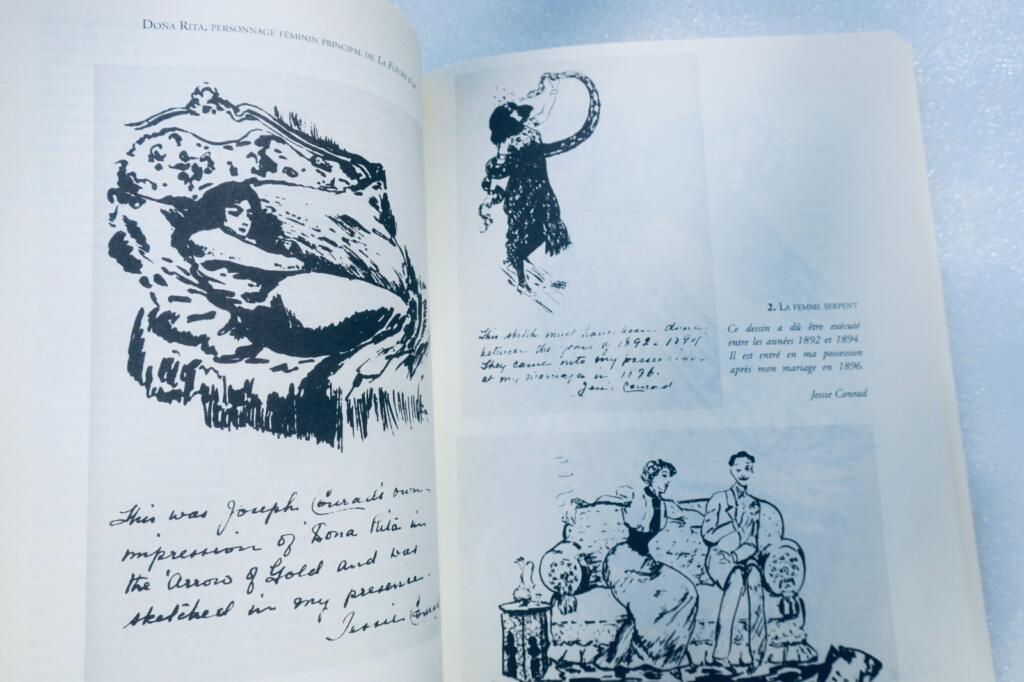 DOÑA RITA, PERSONNAGE FÉMININ PRINCIPAL DE LA FLÈCHE D'OR
This was Joseph Conrad's own
impression of Dona Rita in
the 'Arrow of Gold and was
sketched in my presence.
Jessie Conrad
This sketch must have been done
between the years of 1892-1894
They came into my possession
at my marriage in 1896.
Jessie Conrad
2. LA FEMME SERPENT
Ce dessin a dû être exécuté
entre les années 1892 et 1894.
Il est entré en ma possession
après mon mariage en 1896.
Jessie Conrad